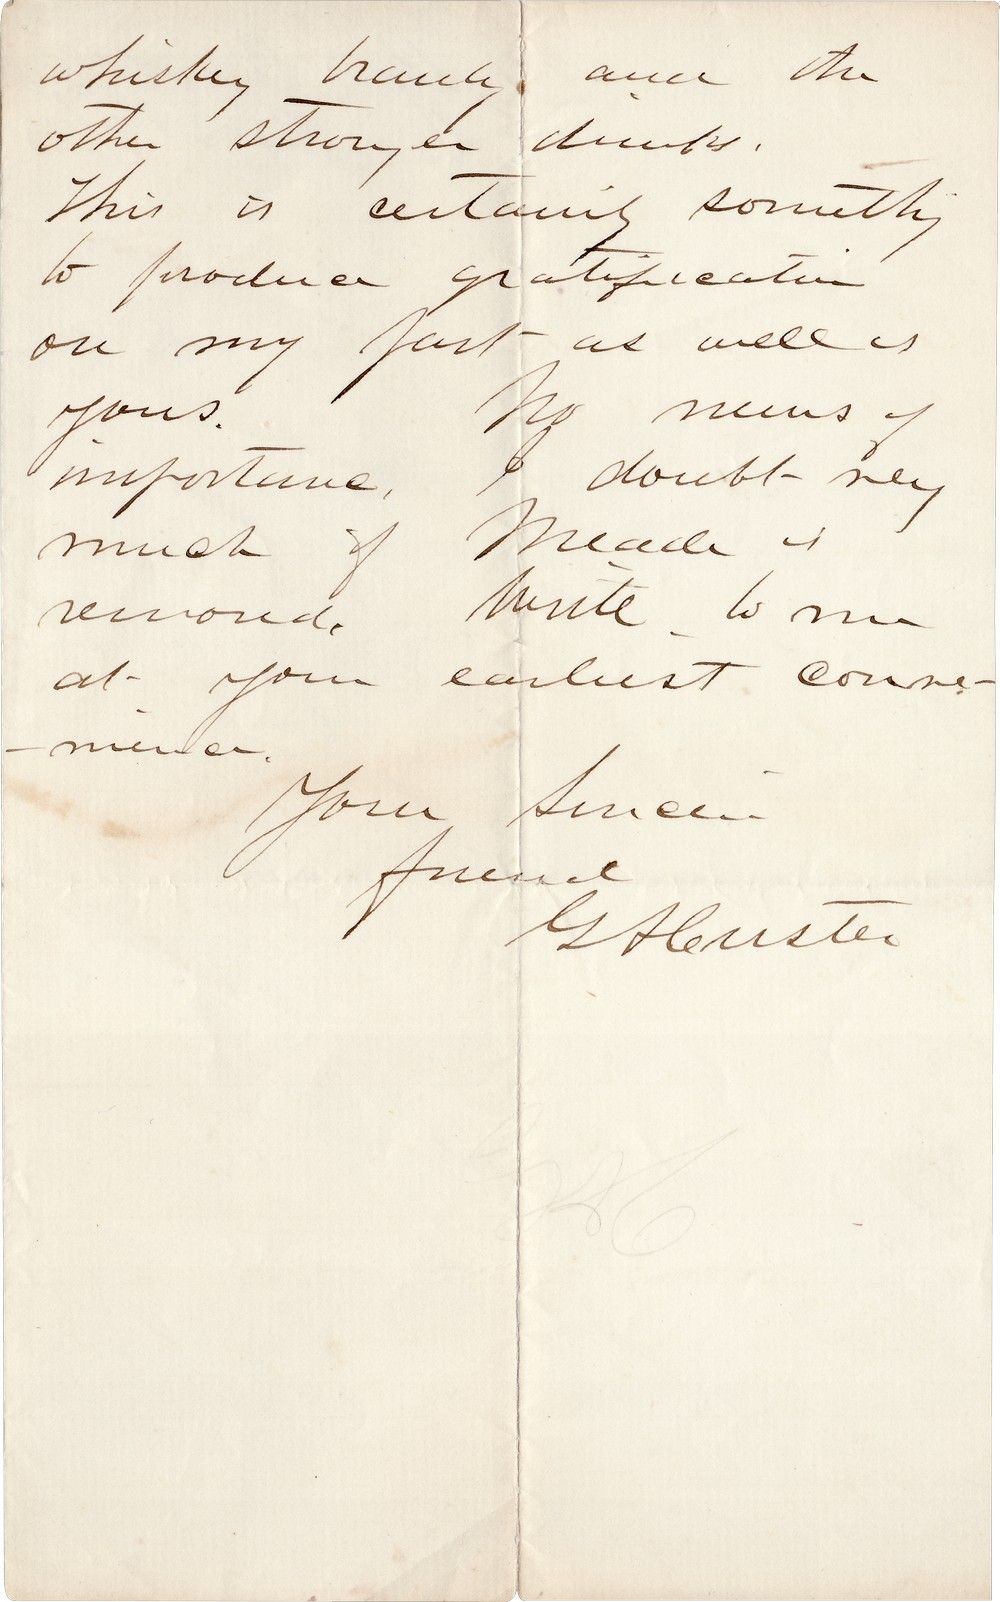 whiskey brandy and the
other stronger drinks.
This is certainly something
to produce gratification
on my part as well as
yours. No news of
importance. I doubt very
much if Meade is
removed. Write to me
at your earliest conve-
-nience.
Your Sincere
friend
GACuster